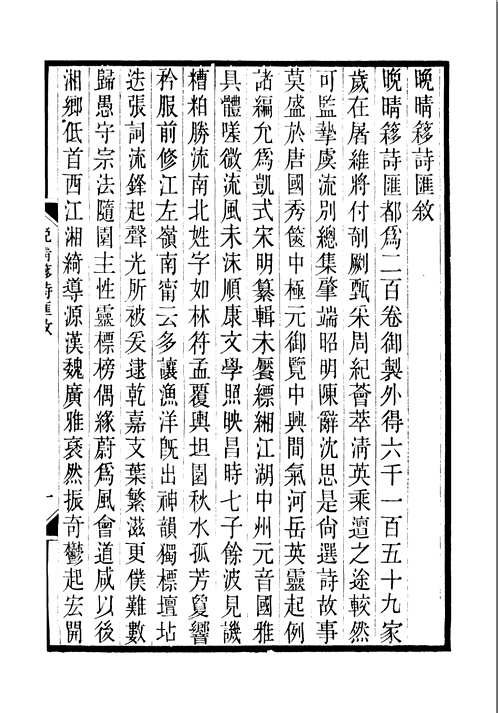 晚晴簃詩匯敘
晚晴簃詩匯都為二百卷御製外得六千一百五十九家
歲在屠維將付剞劂甄采周紀薈萃清英乘壇之途較然
可監摯虞流別總集肇端昭明陳辭沈思是尙選詩故事
莫盛於唐國秀篋中極元御覽中興間氣河岳英靈起例
諸編允為凱式宋明纂輯未饜縹緗江湖中州元音國雅
具體嗟微流風未沬順康文學照映昌時七子餘波見譏
糟粕勝流南北姓字如林符孟覆輿坦園秋水孤芳敻響
矜服前修江左嶺南甯云多讓漁洋旣出神韻獨標壇坫
迭張詞流鋒起聲光所被爰逮乾嘉支葉繁滋更僕難數
歸愚守宗法隨園主性靈標榜偶緣蔚為風會道咸以後
湘鄉低首西江湘綺導源漢魏廣雅裒然振奇鬱起宏開
晚晴簃詩匯敘
一